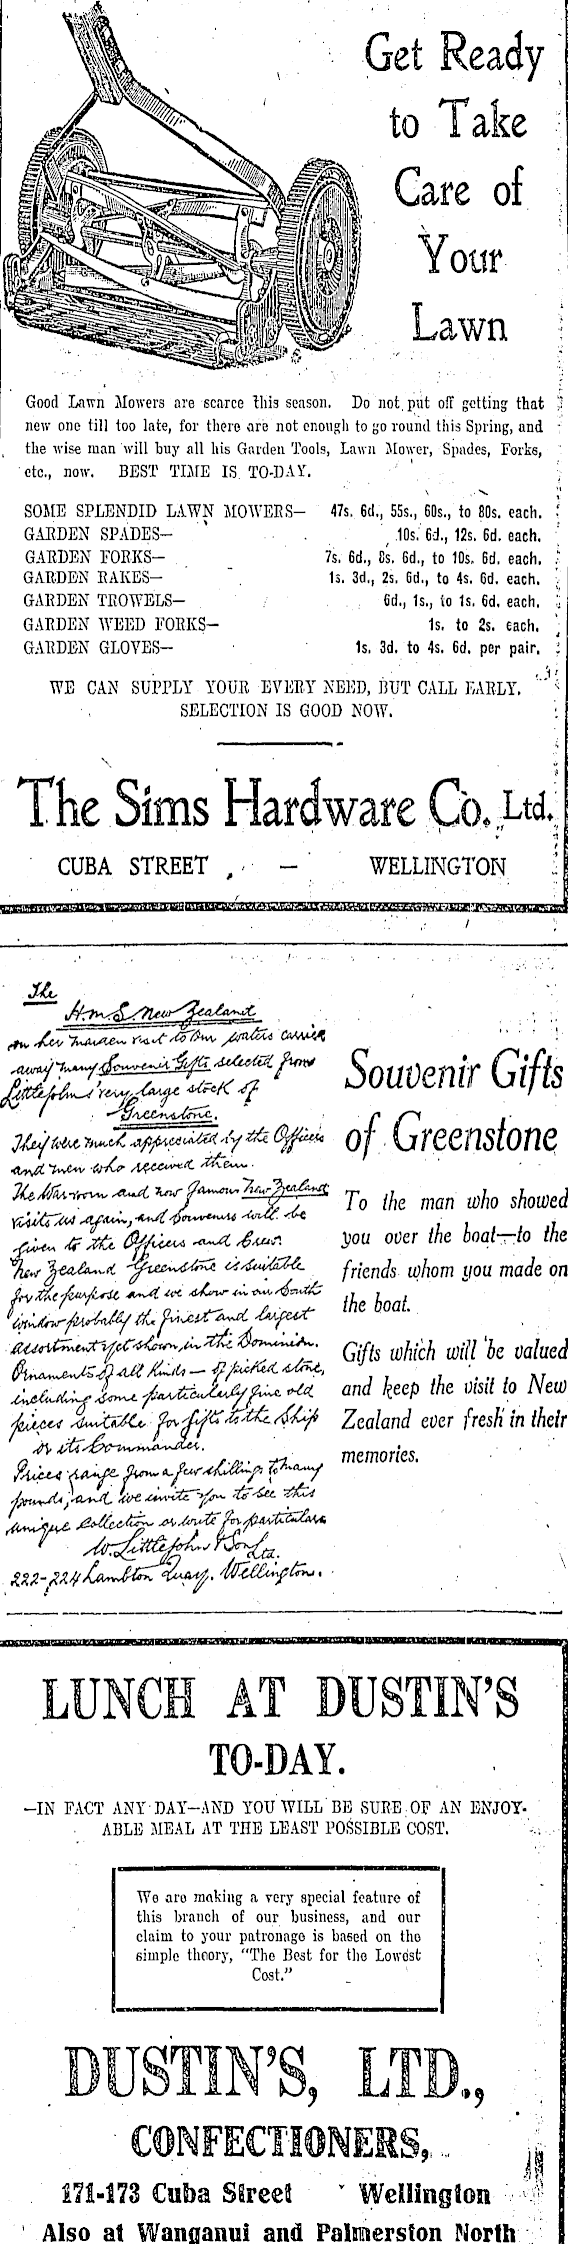 Get Ready
to Take
Care of
Your
Lawn
Good Lawn Mowers are scarce this season. Do not put off getting that
new one till too late, for there are not enough to go round this Spring, and
the wise man will buy all his Garden Tools, Lawn Mower, Spades, Forks,
etc., now. BEST TIME IS TO-DAY.
SOME SPLENDID LAWN MOWERS— 47s. 6d., 55s., 60s., to 80s. each.
GARDEN SPADES— 10s. 6d., 12s. 6d. each.
GARDEN FORKS— 7s. 6d., 8s. 6d., to 10s. 6d. each.
GARDEN RAKES— 1s. 3d., 2s. 6d., to 4s. 6d. each.
GARDEN TROWELS— 6d., 1s., to 1s. 6d. each.
GARDEN WEED FORKS— 1s. to 2s. each.
GARDEN GLOVES— 1s. 3d. to 4s. 6d. per pair.
WE CAN SUPPLY YOUR EVERY NEED, BUT CALL EARLY.
SELECTION IS GOOD NOW.
The Sims Hardware Co. Ltd.
CUBA STREET — WELLINGTON
The
H.M.S. New Zealand
on her maiden visit to our waters carried
away many Souvenir Gifts selected from
Littlejohn's very large stock of
Greenstone.
They were much appreciated by the Officers
and men who received them.
The War-worn and now famous New Zealand
visits us again, and Souvenirs will be
given to the Officers and Crew.
New Zealand Greenstone is suitable
for the purpose and we show in our South
window probably the finest and largest
assortment yet shown in the Dominion.
Ornaments of all kinds — of picked stone,
including some particularly fine old
pieces suitable for gifts to the Ship
or its Commander.
Prices range from a few shillings to many
pounds, and we invite you to see this
unique collection or write for particulars
W. Littlejohn & Son
Ltd.
222-224 Lambton Quay. Wellington.
Souvenir Gifts
of Greenstone
To the man who showed
you over the boat—to the
friends whom you made on
the boat.
Gifts which will be valued
and keep the visit to New
Zealand ever fresh in their
memories.
LUNCH AT DUSTIN'S
TO-DAY.
—IN FACT ANY DAY—AND YOU WILL BE SURE OF AN ENJOY-
ABLE MEAL AT THE LEAST POSSIBLE COST.
We are making a very special feature of
this branch of our business, and our
claim to your patronage is based on the
simple theory, "The Best for the Lowest
Cost."
DUSTIN'S, LTD.,
CONFECTIONERS,
171-173 Cuba Street Wellington
Also at Wanganui and Palmerston North